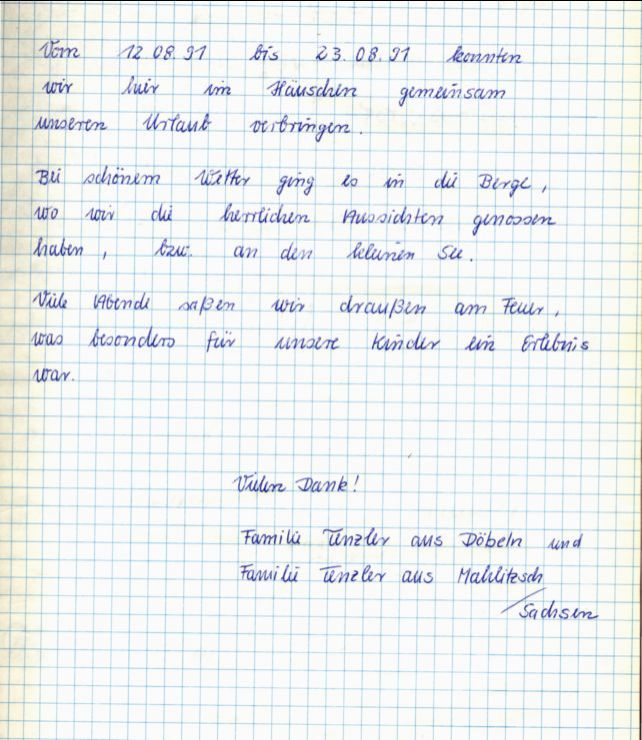 Vom 12.08.91 bis 23.08.91 konnten
wir hier im Häuschen gemeinsam
unseren Urlaub verbringen.
Bei schönem Wetter ging es in die Berge,
wo wir die herrlichen Aussichten genossen
haben, bzw. an den kleinen See.
Viele Abende saßen wir draußen am Feuer,
was besonders für unsere Kinder ein Erlebnis
war.
Vielen Dank!
Familie Tenzler aus Döbeln und
Familie Tenzler aus Mahlitzsch
/Sachsen